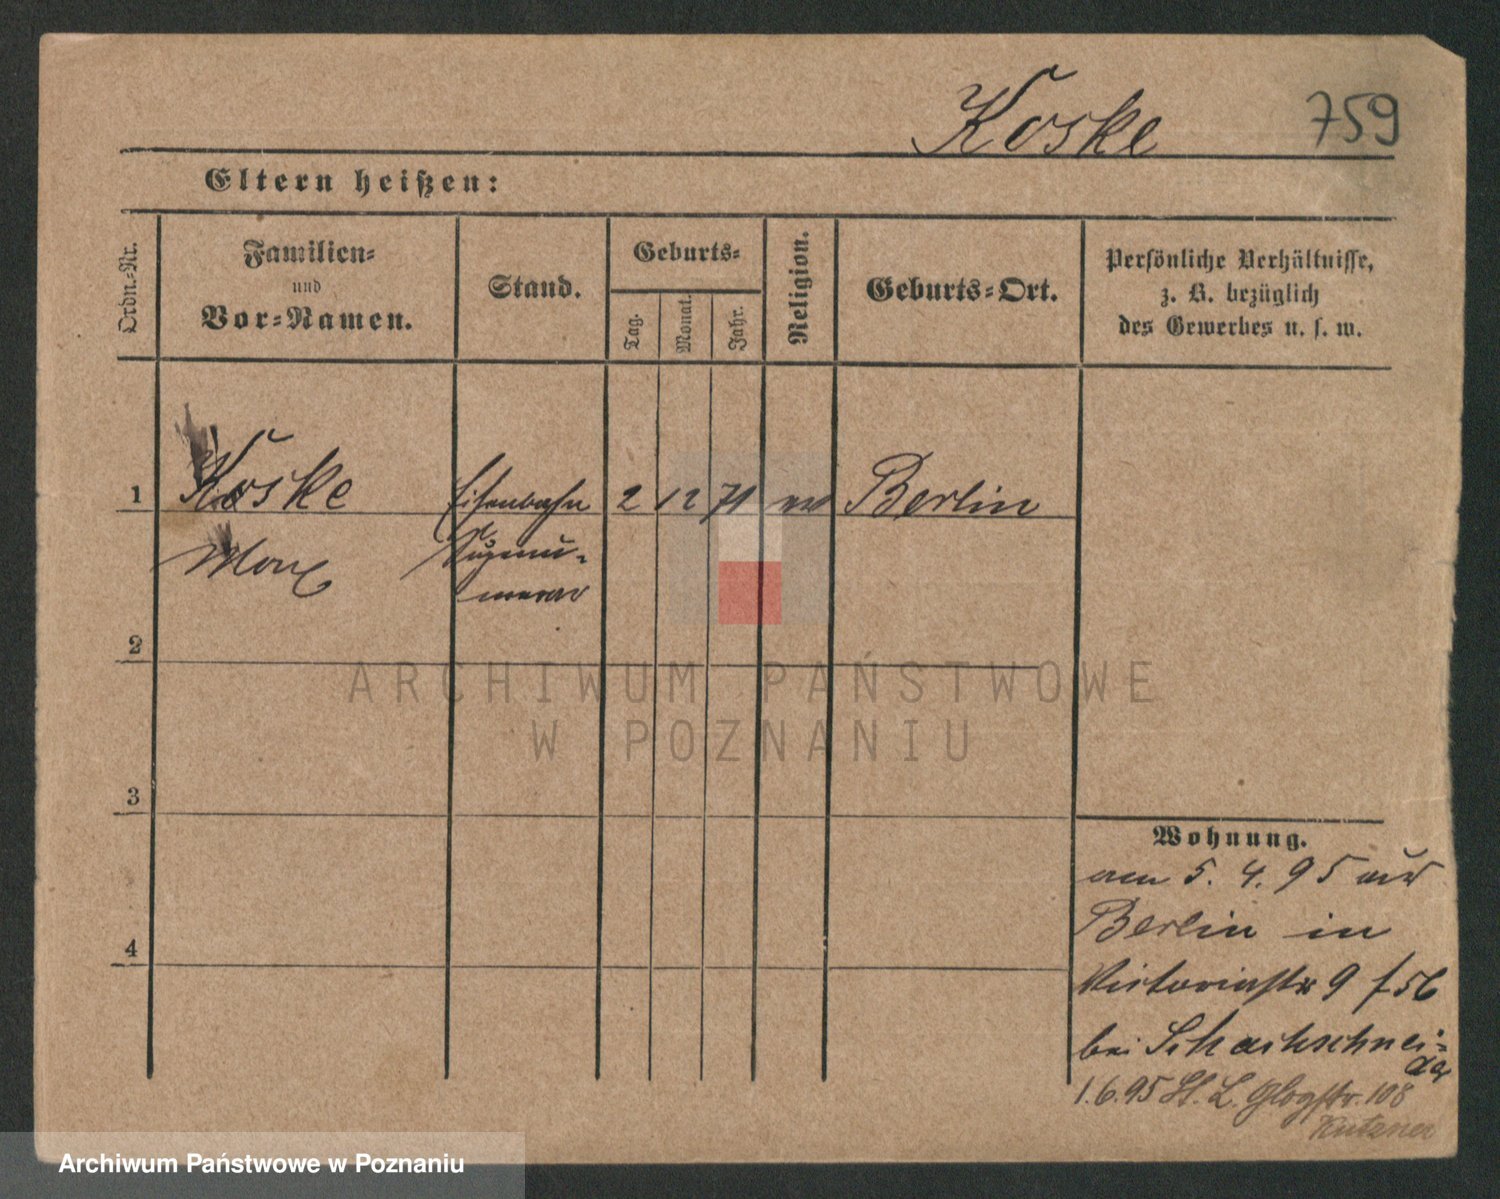 Koske 759
Eltern heißen:
Ordn.-Nr.
Familien-
und
Vor-Namen.
Stand.
Geburts-
Tag.
Monat.
Jahr.
Religion.
Geburts-Ort.
Persönliche Verhältnisse,
z. B. bezüglich
des Gewerbes u. s. w.
1 Koske Eisenbahn 2 12 71 ev Berlin
Max
merar
2
3
4
Wohnung.
am 5. 4. 95 aus
Berlin in
Victoriastr 9
bei Schachschnei-
der
1.6.95 St. L. Glogstr. 108
Kutzner
ARCHIWUM PAŃSTWOWE
W POZNANIU
Archiwum Państwowe w Poznaniu